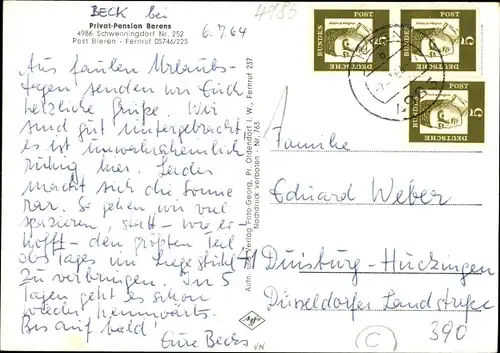 BECK bei
Privat-Pension Berens
4986 Schwenningdorf Nr. 252
Post Bieren - Fernruf 05746/225
6.7.64
4986
Aus faulen Urlaubs-
tagen senden wir Euch
herzliche Grüße. Wir
sind gut untergebracht
es ist unwahrscheinlich
ruhig hier. Leider
macht sich die Sonne
rar. So gehen wir viel
spazieren, statt - wie er-
hofft - den größten Teil
des Tages im Liegestuhl
zu verbringen. In 5
Tagen geht es schon
wieder heimwärts.
Bis auf bald!
Eure Becks
Aufn. und Verlag Foto-Georg, Pr. Oldendorf i. W., Fernruf 237
Nachdruck verboten - Nr. 763
Agfa
VN
DEUTSCHE BUNDESPOST 5
DEUTSCHE BUNDESPOST 5
DEUTSCHE BUNDESPOST 5
Familie
Eduard Weber
41 Duisburg-Huckingen
Düsseldorfer Landstraße
390
C